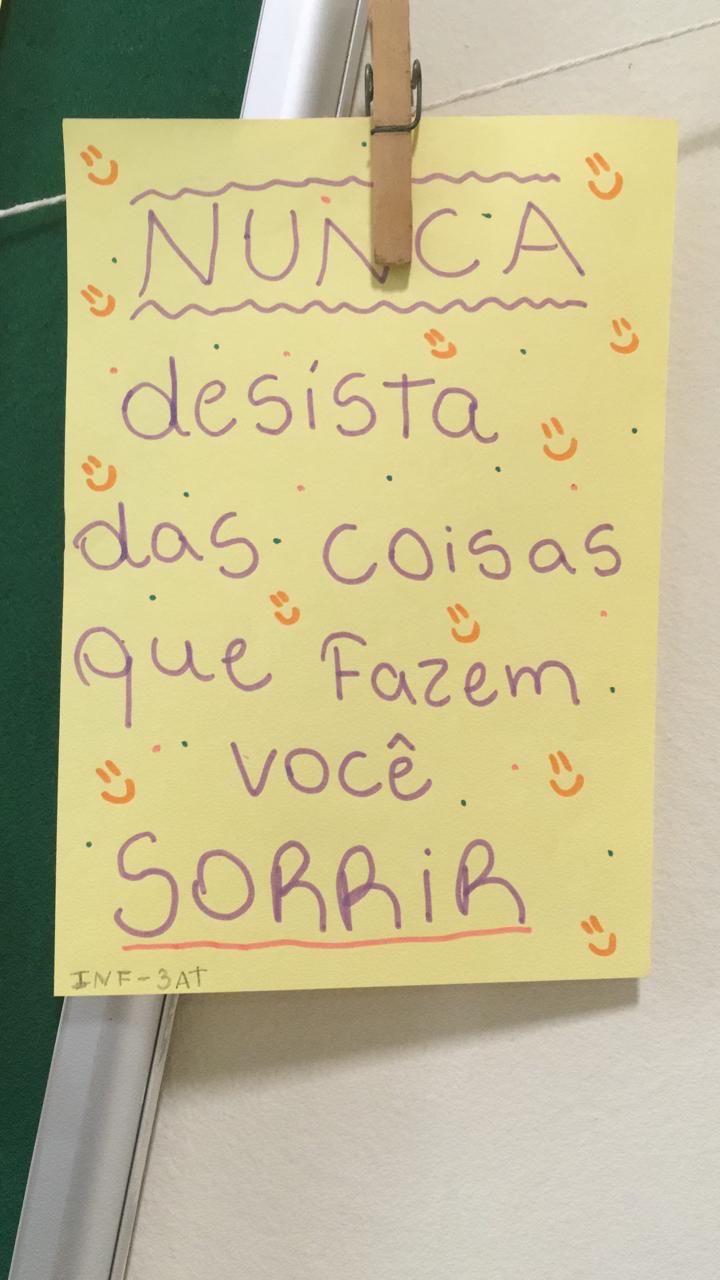 NUNCA
desista
das coisas
que fazem
você
SORRiR
INF-3AT